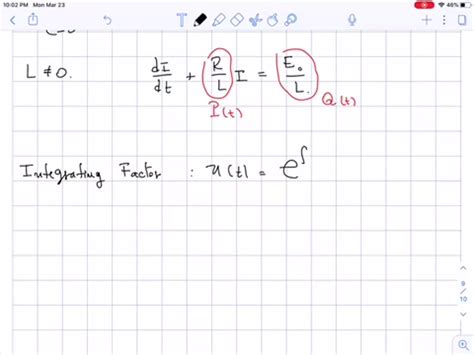 10:02 PM Mon Mar 23
46%
L ≠ 0. dI/dt + R/L I = E₀/L.
P(t) Q(t)
Integrating Factor : u(t) = e^∫
9
10